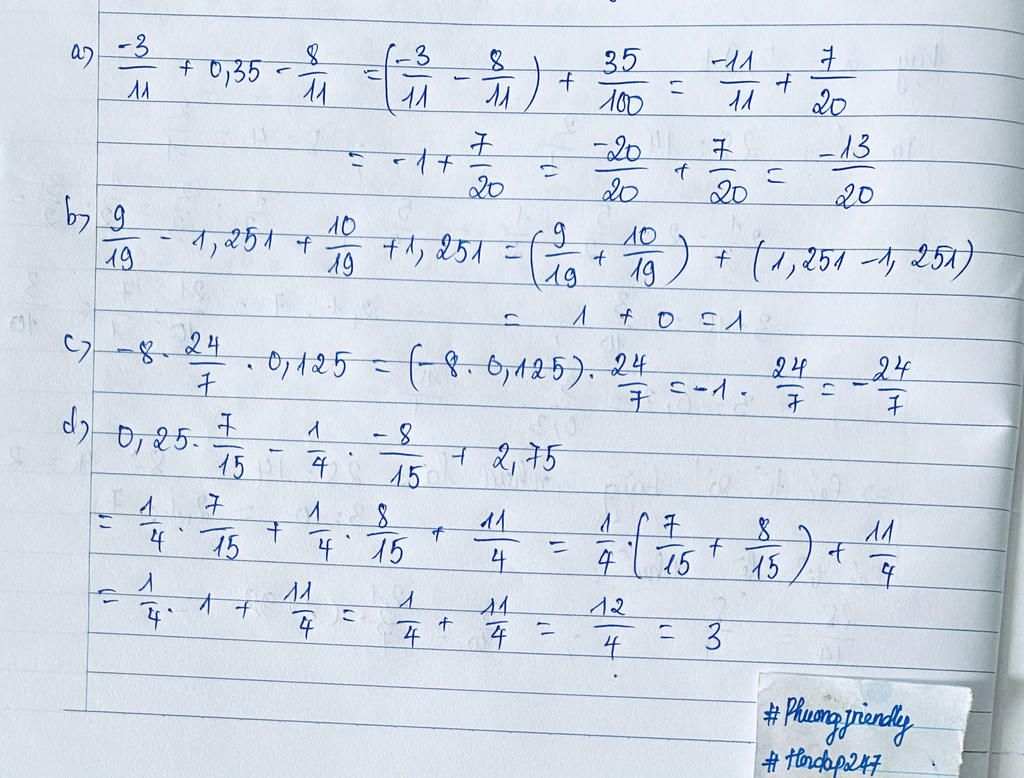 a) -3/11 + 0,35 - 8/11 = (-3/11 - 8/11) + 35/100 = -11/11 + 7/20
= -1 + 7/20 = -20/20 + 7/20 = -13/20
b) 9/19 - 1,251 + 10/19 + 1,251 = (9/19 + 10/19) + (1,251 - 1,251)
= 1 + 0 = 1
c) -8 . 24/7 . 0,125 = (-8 . 0,125) . 24/7 = -1 . 24/7 = -24/7
d) 0,25 . 7/15 - 1/4 . -8/15 + 2,75
= 1/4 . 7/15 + 1/4 . 8/15 + 11/4 = 1/4 . (7/15 + 8/15) + 11/4
= 1/4 . 1 + 11/4 = 1/4 + 11/4 = 12/4 = 3
# Phuongfriendly
# Hoidap247